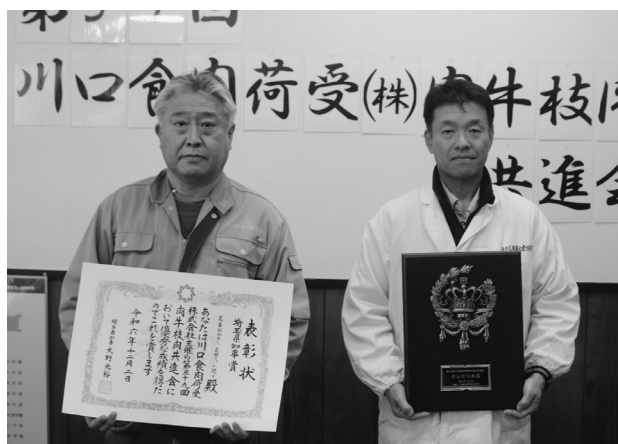 第39回
川口食肉荷受(株)肉牛枝肉
共進会
表彰状
埼玉県知事賞
殿
あなたは川口食肉荷受
株式会社主催の第三十九回
肉牛枝肉共進会に
おいて優秀な成績を得た
のでこれを賞します
令和六年十二月二日
埼玉県知事 大野元裕
埼玉県知事賞